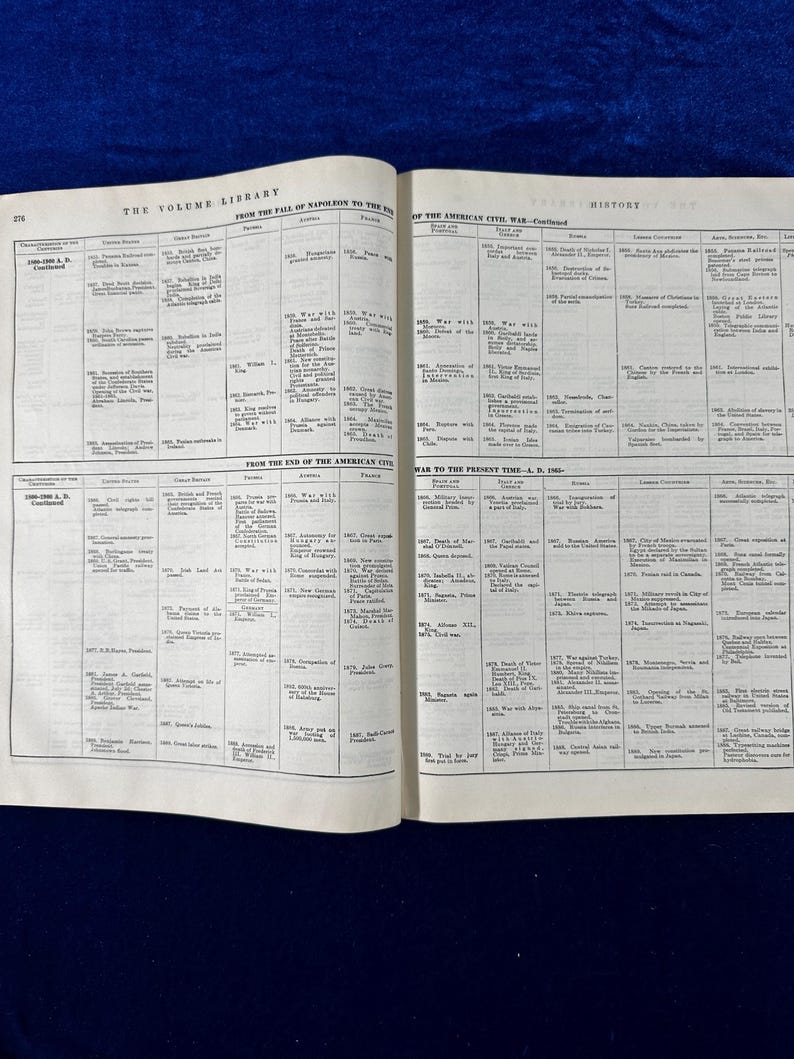 276
THE VOLUME LIBRARY
FROM THE FALL OF NAPOLEON TO THE END
CHARACTERISTICS OF THE
CENTURIES
UNITED STATES
GREAT BRITAIN
PRUSSIA
AUSTRIA
FRANCE
1800-1900 A. D.
Continued
1855. Panama Railroad com-
pleted.
Troubles in Kansas.
1857. Dred Scott decision.
James Buchanan, President.
Great financial panic.
1859. John Brown captures
Harpers Ferry.
1860. South Carolina passes
ordinance of secession.
1861. Secession of Southern
States, and establishment
of the Confederate States
under Jefferson Davis.
Opening of the Civil war,
1861-1865.
Abraham Lincoln, Presi-
dent.
1865. Assassination of Presi-
dent Lincoln; Andrew
Johnson, President.
1857. Rebellion in India
begins. King of Delhi
proclaimed Sovereign of
India.
1858. Completion of the
Atlantic telegraph cable.
1860. Rebellion in India
subdued.
Neutrality proclaimed
during the American
Civil war.
1865. Fenian outbreaks in
Ireland.
1861. William I.,
King.
1862. Bismarck, Pre-
mier.
1863. King resolves
to govern without
parliament.
1864. War with
Denmark.
1856. Hungarians
granted amnesty.
1859. War with
France and Sar-
dinia.
Austrians defeated
at Montebello.
Peace after Battle
of Solferino.
Death of Prince
Metternich.
1861. New constitu-
tion for the Aus-
trian monarchy.
Civil and political
rights granted
Protestants.
1862. Amnesty to
political offenders
in Hungary.
1864. Alliance with
Prussia against
Denmark.
1856. Peace with
Russia.
1859. War with
Austria.
1860. Commercial
treaty with Eng-
land.
1862. Great distress
caused by Amer-
ican Civil war.
1863. The French
occupy Mexico.
1864. Maximilian
accepts Mexican
crown.
1865. Death of
Proudhon.
FROM THE END OF THE AMERICAN CIVIL
CHARACTERISTICS OF THE
CENTURIES
UNITED STATES
GREAT BRITAIN
PRUSSIA
AUSTRIA
FRANCE
1800-1900 A. D.
Continued
1866. Civil rights bill
passed.
Atlantic telegraph com-
pleted.
1867. General amnesty proc-
lamation.
1868. Burlingame treaty
with China.
1869. U. S. Grant, President.
Union Pacific railway
opened for traffic.
1877. R. B. Hayes, President.
1881. James A. Garfield,
President.
President Garfield assas-
sinated, July 2d; Chester
A. Arthur, President.
1885. Grover Cleveland,
President.
Apache Indian War.
1889. Benjamin Harrison,
President.
Johnstown flood.
1865. British and French
governments rescind
their recognition of the
Confederate States of
America.
1870. Irish Land Act
passed.
1873. Payment of Ala-
bama claims to the
United States.
1876. Queen Victoria pro-
claimed Empress of In-
dia.
1882. Attempt on life of
Queen Victoria.
1887. Queen's Jubilee.
1889. Great labor strikes.
1866. Prussia pre-
pares for war with
Austria.
Battle of Sadowa.
Hanover annexed.
First parliament
of the German
Confederation.
1867. North German
Constitution
accepted.
1870. War with
France.
Battle of Sedan.
1871. King of Prussia
proclaimed Em-
peror of Germany.
GERMANY
1871. William I.,
Emperor.
1877. Attempted as-
sassination of em-
peror.
1888. Accession and
death of Frederick
III. William II.,
Emperor.
1866. War with
Prussia and Italy.
1867. Autonomy for
Hungary an-
nounced.
Emperor crowned
King of Hungary.
1870. Concordat with
Rome suspended.
1871. New German
empire recognized.
1878. Occupation of
Bosnia.
1882. 600th anniver-
sary of the House
of Habsburg.
1886. Army put on
war footing of
1,500,000 men.
1867. Great exposi-
tion in Paris.
1869. New constitu-
tion promulgated.
1870. War declared
against Prussia.
Battle of Sedan.
Surrender of Metz.
1871. Capitulation
of Paris.
Peace ratified.
1873. Marshal Mac-
Mahon, President.
1874. Death of
Guizot.
1879. Jules Grevy,
President.
1887. Sadi-Carnot
President.
HISTORY
OF THE AMERICAN CIVIL WAR—Continued
SPAIN AND
PORTUGAL
ITALY AND
GREECE
RUSSIA
LESSER COUNTRIES
ARTS, SCIENCES, ETC.
1859. War with
Morocco.
1860. Defeat of the
Moors.
1861. Annexation of
Santo Domingo,
Intervention
in Mexico.
1864. Rupture with
Peru.
1865. Dispute with
Chile.
1855. Important con-
cordat between
Italy and Austria.
1859. War with
Austria.
1860. Garibaldi lands
in Sicily, and as-
sumes dictatorship.
Sicily and Naples
liberated.
1861. Victor Emmanuel
II., King of Sardinia,
King of Italy.
1862. Garibaldi estab-
lishes a provisional
government.
Insurrection
in Greece.
1864. Florence made
the capital of Italy.
1865. Ionian Isles
made over to Greece.
1855. Death of Nicholas I.
Alexander II., Emperor.
1856. Destruction of Se-
bastopol docks.
Evacuation of Crimea.
1858. Partial emancipation
of the serfs.
1862. Nesselrode, Chan-
cellor.
1863. Termination of serf-
dom.
1864. Emigration of Cau-
casian tribes into Turkey.
1855. Santa Ana abdicates the
presidency of Mexico.
1858. Massacre of Christians in
Turkey.
Suez Railroad completed.
1861. Canton restored to the
Chinese by the French and
English.
1864. Nankin, China, taken by
Gordon for the Imperialists.
Valparaiso bombarded by
Spanish fleet.
1855. Panama Railroad
completed.
Bessemer's steel process
patented.
1856. Submarine telegraph
laid from Cape Breton to
Newfoundland.
1858. Great Eastern
launched at London.
Laying of the Atlantic
cable.
Boston Public Library
opened.
1859. Telegraphic communi-
cation between India and
England.
1861. International exhibi-
tion at London.
1863. Abolition of slavery in
the United States.
1864. Convention between
France, Brazil, Italy, Por-
tugal, and Spain for tele-
graph to America.
WAR TO THE PRESENT TIME—A. D. 1865-
SPAIN AND
PORTUGAL
ITALY AND
GREECE
RUSSIA
LESSER COUNTRIES
ARTS, SCIENCES, ETC.
1866. Military insur-
rection headed by
General Prim.
1867. Death of Mar-
shal O'Donnell.
1868. Queen deposed.
1870. Isabella II., ab-
dicates; Amadeus,
King.
1871. Sagasta, Prime
Minister.
1874. Alfonso XII.,
King.
1875. Civil war.
1883. Sagasta again
Minister.
1889. Trial by jury
first put in force.
1866. Austrian war.
Venetia proclaimed
a part of Italy.
1867. Garibaldi and
the Papal states.
1869. Vatican Council
opened at Rome.
1870. Rome is annexed
to Italy.
Declared the capi-
tal of Italy.
1878. Death of Victor
Emmanuel II.
Humbert, King.
Death of Pius IX.
Leo XIII., Pope.
1882. Death of Gari-
baldi.
1885. War with Abys-
sinia.
1887. Alliance of Italy
with Austro-
Hungary and Ger-
many signed,
Crispi, Prime Min-
ister.
1866. Inauguration of
trial by jury.
War with Bokhara.
1867. Russian America
sold to the United States.
1871. Electric telegraph
between Russia and
Japan.
1873. Khiva captured.
1877. War against Turkey.
1878. Spread of Nihilism
in the empire.
1880. Many Nihilists im-
prisoned and executed.
1881. Alexander II. assas-
sinated.
Alexander III., Emperor.
1885. Ship canal from St.
Petersburg to Cron-
stadt opened.
Trouble with the Afghans.
1886. Russia interferes in
Bulgaria.
1888. Central Asian rail-
way opened.
1867. City of Mexico evacuated
by French troops.
Egypt declared by the Sultan
to be a separate sovereignty.
Execution of Maximilian in
Mexico.
1870. Fenian raid in Canada.
1871. Military revolt in City of
Mexico suppressed.
1872. Attempt to assassinate
the Mikado of Japan.
1874. Insurrection at Nagasaki,
Japan.
1878. Montenegro, Servia and
Roumania independent.
1883. Opening of the St.
Gothard Railway from Milan
to Lucerne.
1886. Upper Burmah annexed
to British India.
1889. New constitution pro-
mulgated in Japan.
1866. Atlantic telegraph
successfully completed.
1867. Great exposition at
Paris.
1868. Suez canal formally
opened.
1869. French Atlantic tele-
graph completed.
1870. Railway from Cal-
cutta to Bombay.
Mont Cenis tunnel com-
pleted.
1873. European calendar
introduced into Japan.
1876. Railway open between
Quebec and Halifax.
Centennial Exposition at
Philadelphia.
1877. Telephone invented
by Bell.
1885. First electric street
railway in United States
at Baltimore.
1885. Revised version of
Old Testament published.
1887. Great railway bridge
at Lachine, Canada, com-
pleted.
1888. Typesetting machine
perfected.
Pasteur discovers cure for
hydrophobia.